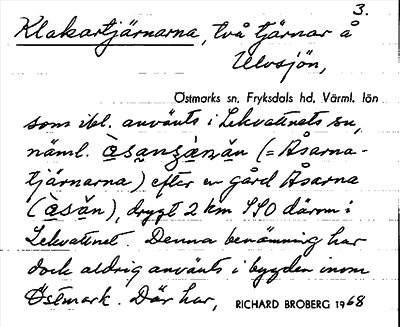 3.
Klakartjärnarna, två tjärnar å
Ulvsjön,
Östmarks sn, Fryksdals hd, Värml. län
som ibl. använts i Lekvattnets sn,
näml. (= Åsarna-
tjärnarna) efter en gård Åsarna
(àsăn), drygt 2 km SSO därom i
Lekvattnet. Denna benämning har
dock aldrig använts i bygden inom
Östmark. Där har,
RICHARD BROBERG 1968